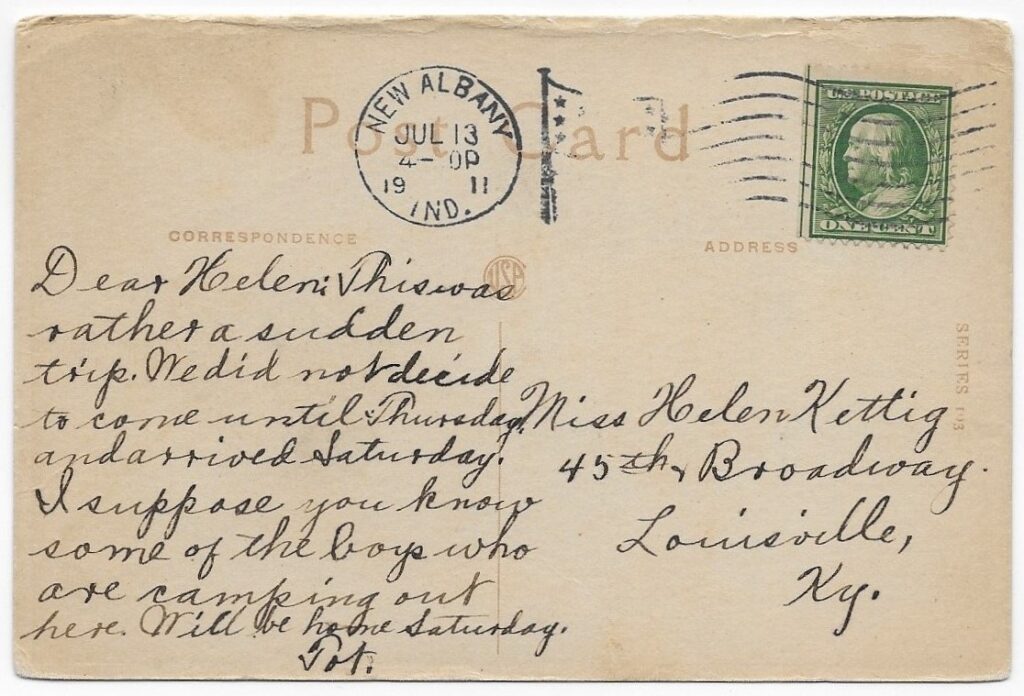 Post Card
NEW ALBANY
JUL 13
4- 0P
19 11
IND.
U.S. POSTAGE
ONE CENT
CORRESPONDENCE
ADDRESS
USA
SERIES 193
Dear Helen: This was
rather a sudden
trip. We did not decide
to come until Thursday,
and arrived Saturday.
I suppose you know
some of the boys who
are camping out
here. Will be home Saturday.
Miss Helen Kettig
45th & Broadway.
Louisville,
Ky.